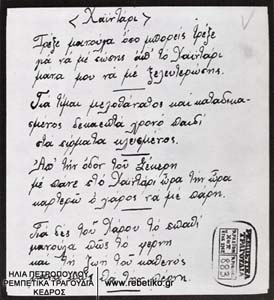 < Χαϊντάρι >
Τρέξε μανούλα όσο μπορείς τρέξε
για να με σώσης απ' το Χαϊντάρι
μάνα μου να με ξελευτερώσης.
Για είμαι μελοθάνατος και καταδικα-
σμένος δεκαεπτά χρονό παιδί
στα σίδερα κλεισμένος.
Απ' την οδόν του Σέκερη
με πάνε στο Χαϊντάρι ώρα την ώρα
καρτερώ ο χάρος να με πάρη.
Για δες του Χάρου το σπαθί
μανούλα πώς το γέρνη
και τη ζωή του καθενός
θα την παίρνη
ΗΛΙΑ ΠΕΤΡΟΠΟΥΛΟΥ
ΡΕΜΠΕΤΙΚΑ ΤΡΑΓΟΥΔΙΑ
ΚΕΔΡΟΣ
www.rebetiko.gr